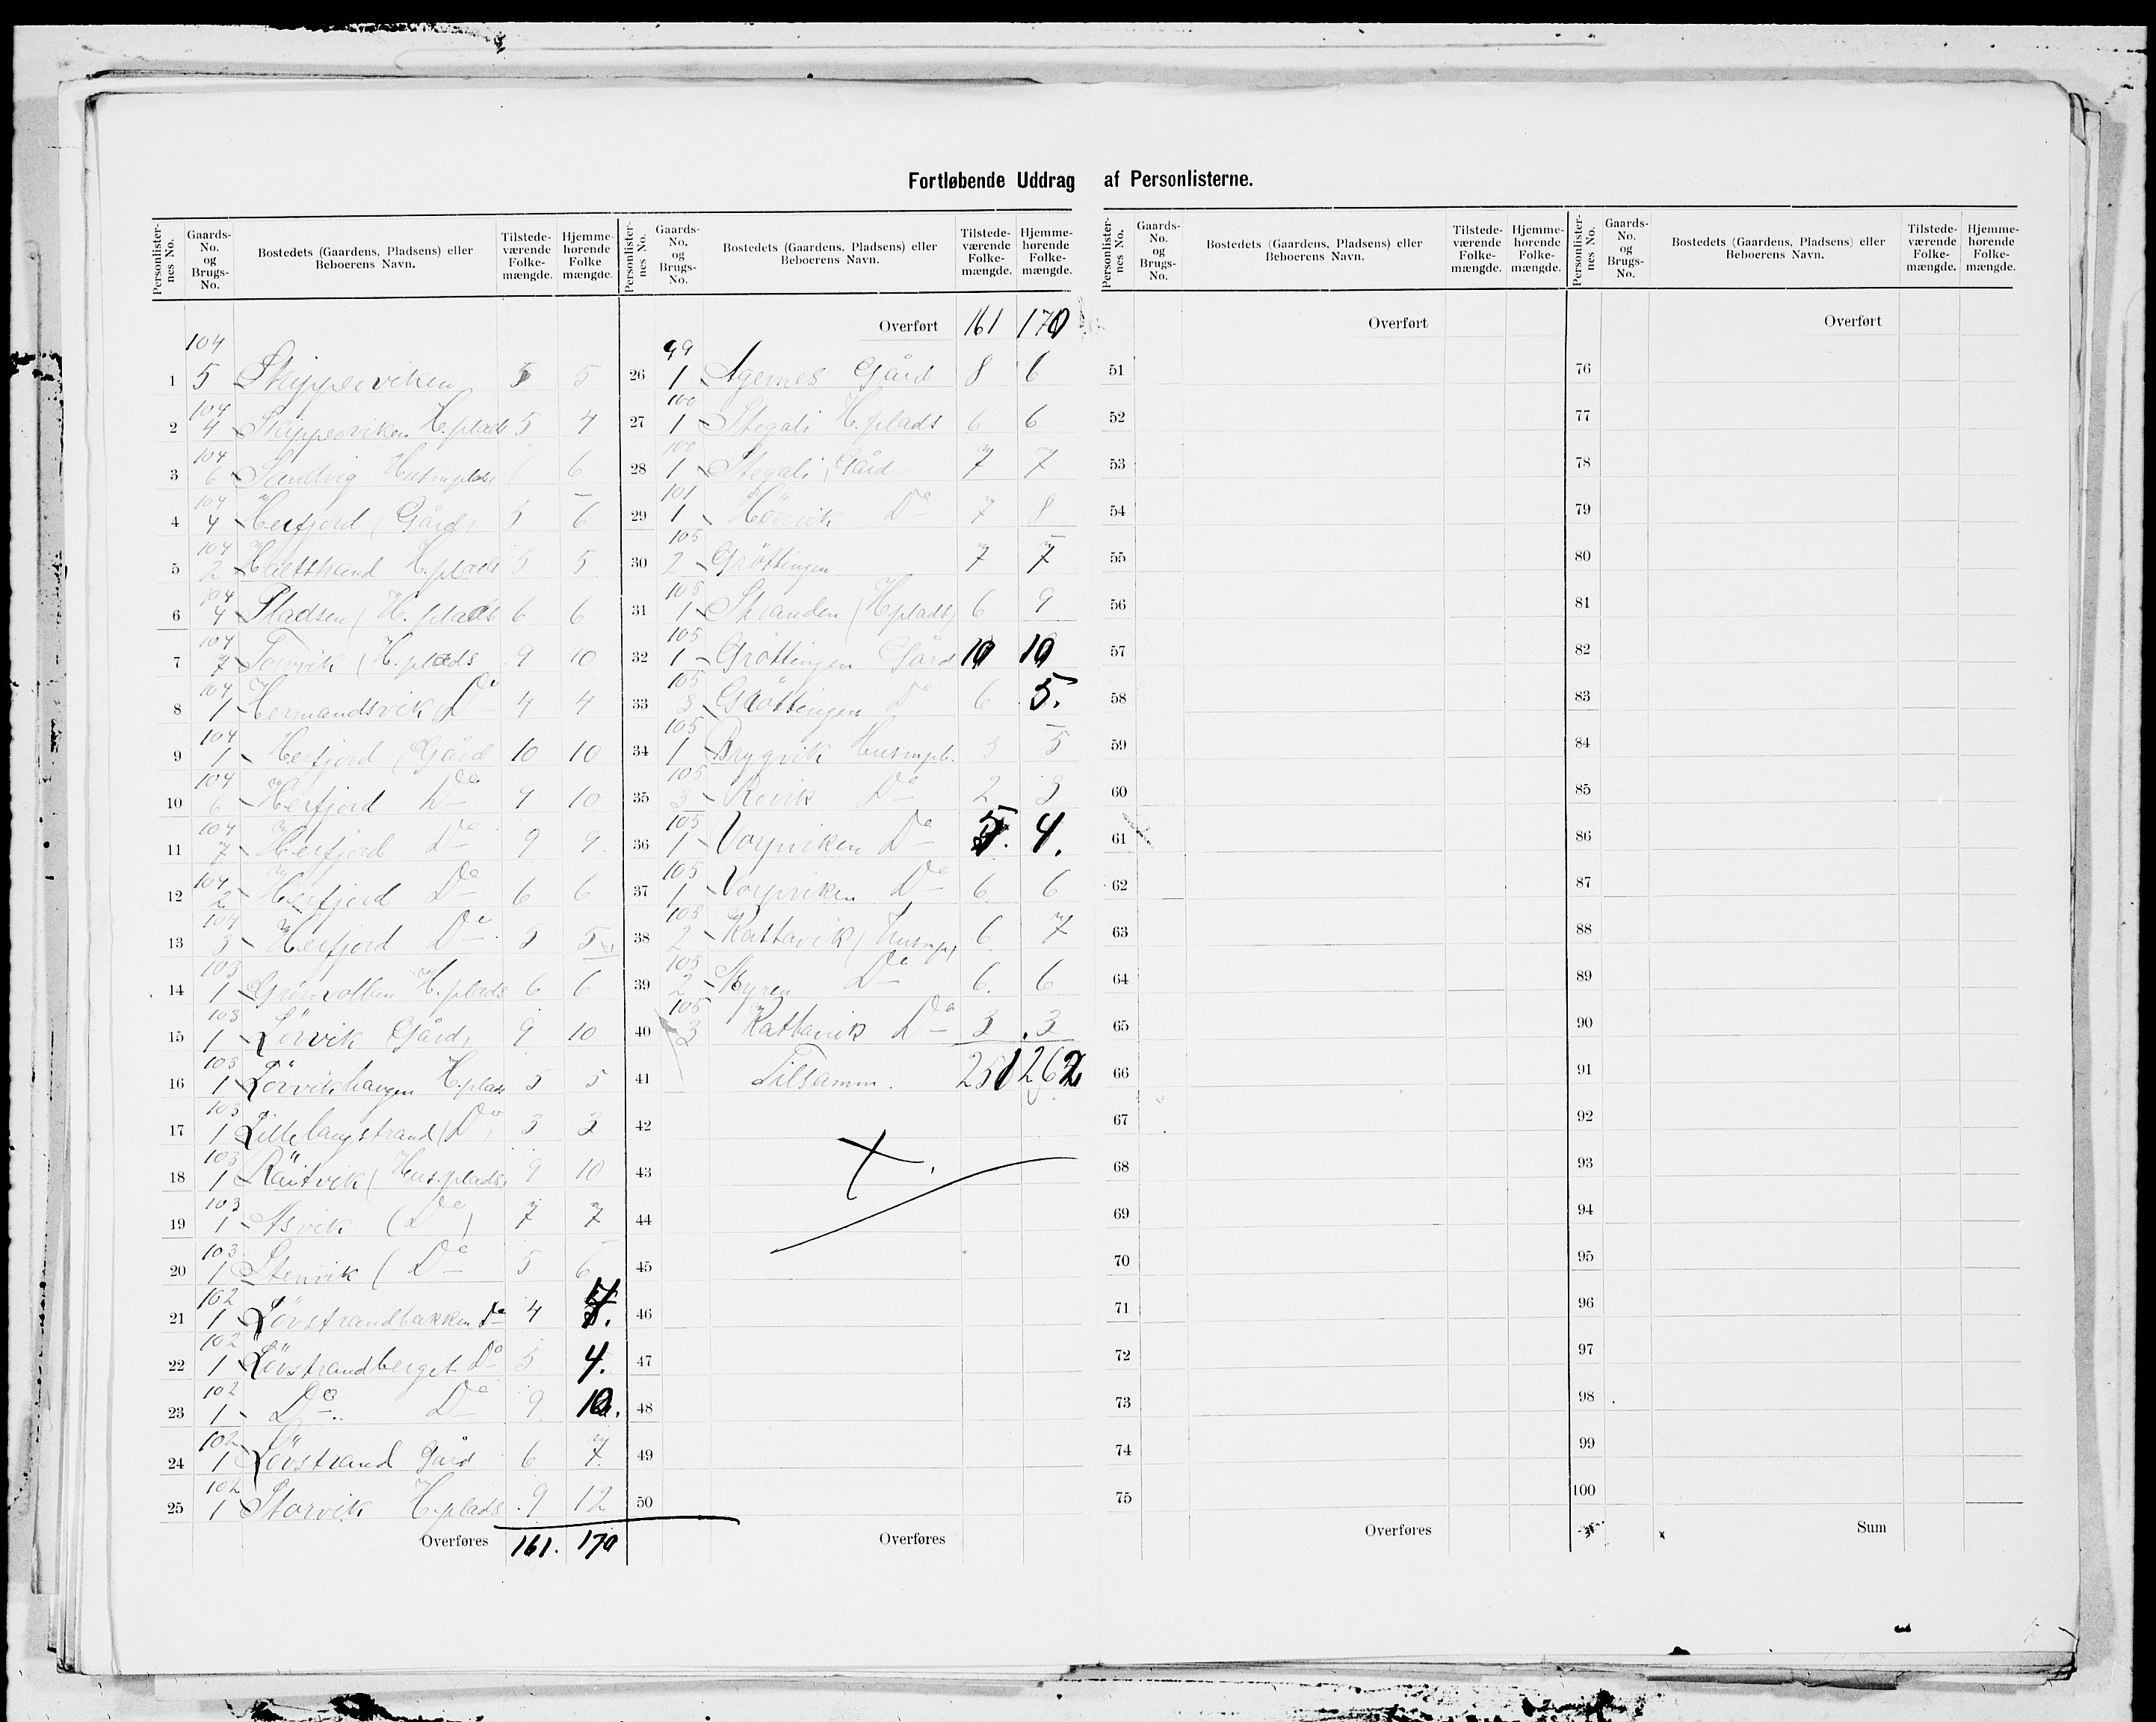 Fortløbende Uddrag af Personlisterne.
Personlisternes No. | Gaards-No. og Brugs-No. | Bostedets (Gaardens, Pladsens) eller Beboerens Navn. | Tilstedeværende Folkemængde. | Hjemmehørende Folkemængde.
1 | 104 5 | Skipperviken | 5 | 5
2 | 104 4 | Skipperviken H.plads | 5 | 4
3 | 104 6 | Sandvig Husmplads | 6 | 6
4 | 104 4 | Herfjord (Gård) | 5 | 6
5 | 104 2 | H.plads | 5 | 5
6 | 104 4 | Pladsen (H. plads | 6 | 6
7 | 104 7 | Torvik (H. plads | 9 | 10
8 | 104 1 | Hermandsvik (Do | 4 | 4
9 | 104 1 | Herfjord (Gård | 10 | 10
10 | 104 6 | Herfjord Do | 9 | 10
11 | 104 7 | Herfjord Do | 9 | 9
12 | 104 2 | Herfjord Do | 6 | 6
13 | 104 3 | Herfjord Do | 5 | 5
14 | 103 1 | Grönvollen H.plads | 6 | 6
15 | 103 1 | Lörvik Gård, | 9 | 10
16 | 103 1 | Lörvikhaugen H.plads | 5 | 5
17 | 103 1 | Lillelangstrand (Do) | 3 | 3
18 | 103 1 | Räitvik (Hus.plads) | 9 | 10
19 | 103 1 | Asvik (Do) | 7 | 7
20 | 103 1 | Stenvik (Do | 5 | 6
21 | 102 1 | Lövstrandbakken Do | 4 |
22 | 102 1 | Lövstrandberget Do | 5 | 4.
23 | 102 1 | Do Do | 9 | 10.
24 | 102 1 | Lövstrand Gård | 6 | 7
25 | 102 1 | Storvik H.plads | 9 | 12
Overføres | 161. | 170
Personlisternes No. | Gaards-No. og Brugs-No. | Bostedets (Gaardens, Pladsens) eller Beboerens Navn. | Tilstedeværende Folkemængde. | Hjemmehørende Folkemængde.
Overført | 161 | 170
26 | 99 1 | Agernes Gård | 8 | 6
27 | 100 1 | Stegali H.plads | 6 | 6
28 | 100 1 | Stegali, Gård | 7 | 7
29 | 101 1 | Hönvik Do | 7 | 8
30 | 105 2 | Gröttingen | 7 | 7
31 | 105 1 | Stranden (H.plads) | 6 | 9
32 | 105 1 | Gröttingen Gård | 10 | 10
33 | 105 3 | Gröttingen Do | 6 | 5.
34 | 105 1 | Brygvik Husmpl. | 5 | 5
35 | 105 3 | Rövik Do | 2 | 3
36 | 105 1 | Vorpviken Do | 5. | 4.
37 | 105 1 | Vorpviken Do | 6 | 6
38 | 105 2 | Rattavik (Husmpl) | 6 | 7
39 | 105 2 | Myren Do | 6. | 6
40 | 105 3 | Rattavik Do | 3 | 3
41 | Tilsamm. | 251 | 262
42
43
44
45
46
47
48
49
50
Overføres
Personlisternes No. | Gaards-No. og Brugs-No. | Bostedets (Gaardens, Pladsens) eller Beboerens Navn. | Tilstedeværende Folkemængde. | Hjemmehørende Folkemængde.
Overført
51
52
53
54
55
56
57
58
59
60
61
62
63
64
65
66
67
68
69
70
71
72
73
74
75
Overføres
Personlisternes No. | Gaards-No. og Brugs-No. | Bostedets (Gaardens, Pladsens) eller Beboerens Navn. | Tilstedeværende Folkemængde. | Hjemmehørende Folkemængde.
Overført
76
77
78
79
80
81
82
83
84
85
86
87
88
89
90
91
92
93
94
95
96
97
98
99
100
Sum